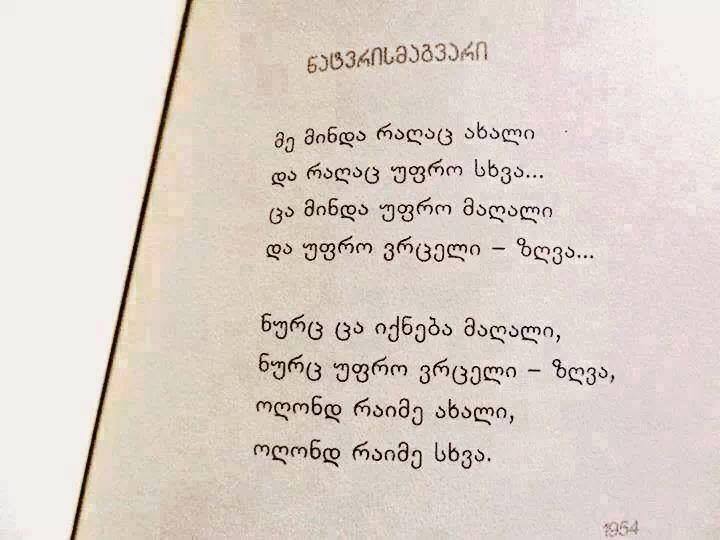 ნატვრისმაგვარი
მე მინდა რაღაც ახალი
და რაღაც უფრო სხვა...
ცა მინდა უფრო მაღალი
და უფრო ვრცელი – ზღვა...
ნურც ცა იქნება მაღალი,
ნურც უფრო ვრცელი – ზღვა,
ოღონდ რაიმე ახალი,
ოღონდ რაიმე სხვა.
1954